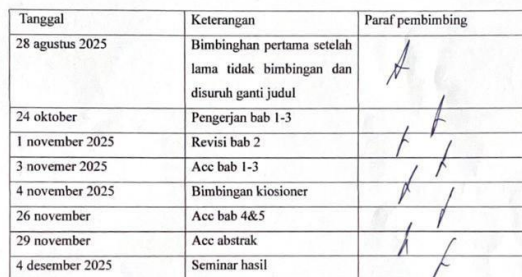 Tanggal Keterangan Paraf pembimbing
28 agustus 2025 Bimbinghan pertama setelah
lama tidak bimbingan dan
disuruh ganti judul
24 oktober Pengerjan bab 1-3
1 november 2025 Revisi bab 2
3 novemer 2025 Acc bab 1-3
4 november 2025 Bimbingan kiosioner
26 november Acc bab 4&5
29 november Acc abstrak
4 desember 2025 Seminar hasil